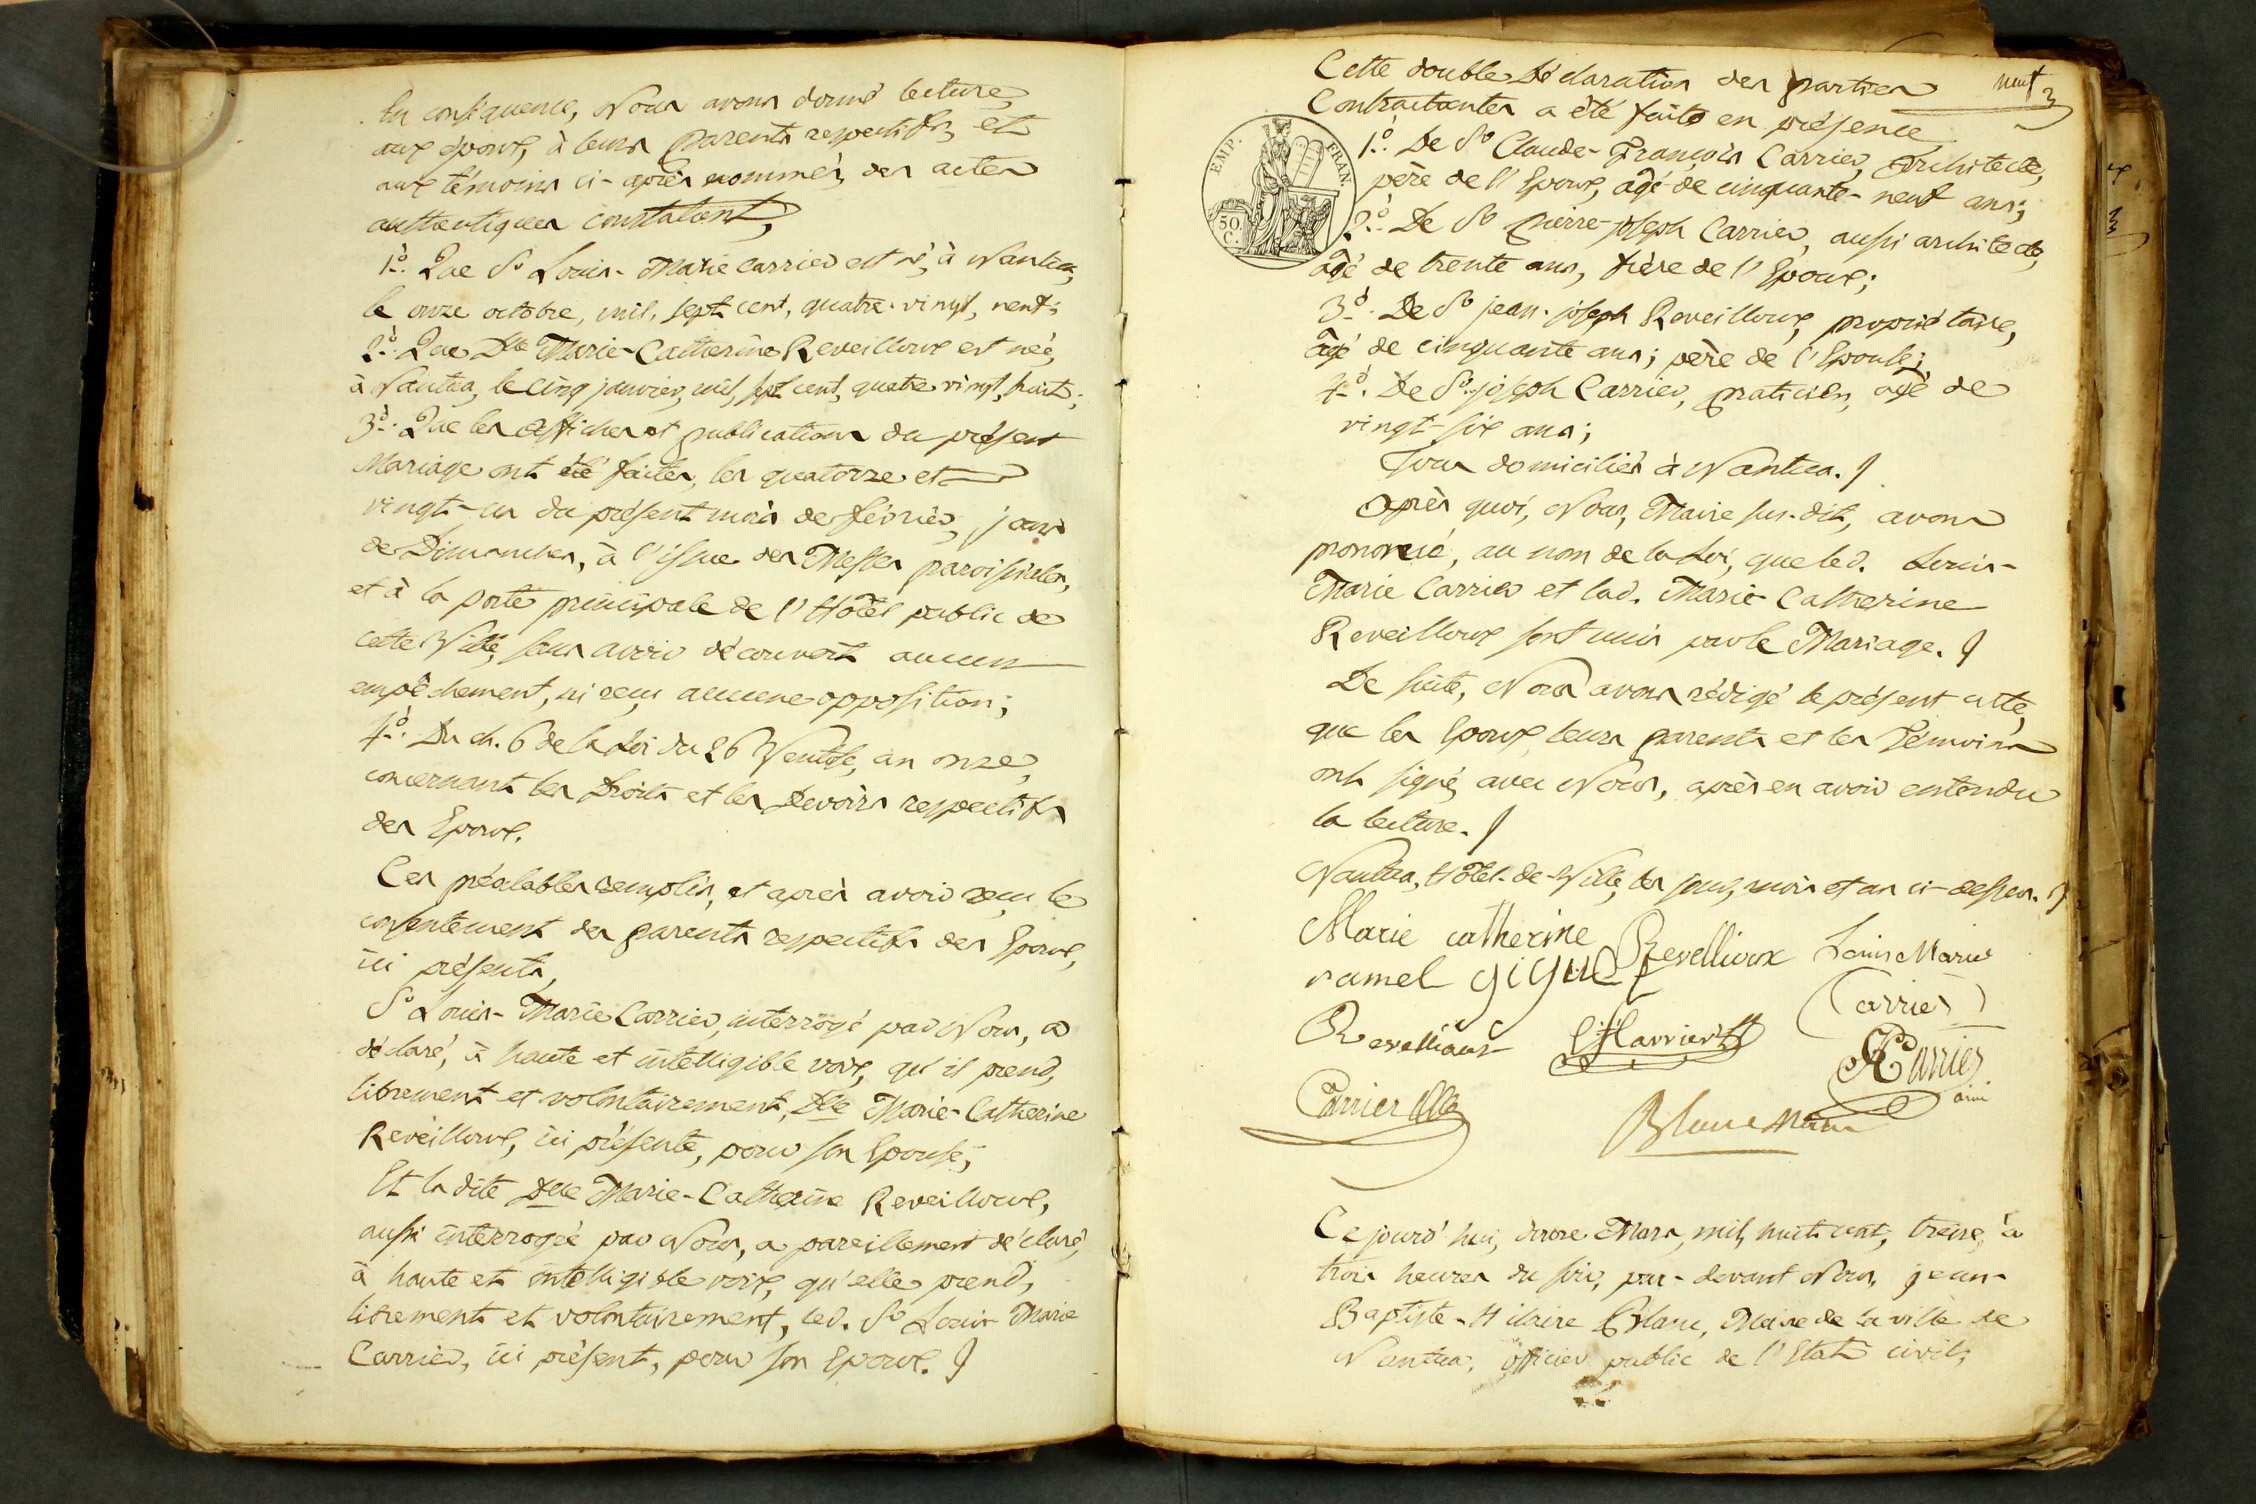 En conséquence, Nous avons donné lecture,
aux époux, à leurs Parents respectifs, et
aux témoins ci-après nommés, des actes
authentiques constatant,
1.º Que Sr Louis-Marie Carrier est né, à Nantua,
le onze octobre, mil, sept cent, quatre-vingt, neuf;
2.º Que Dlle Marie-Catherine Reveilloux est née,
à Nantua, le cinq janvier, mil, sept cent, quatre vingt, huit;
3.º Que les affiches et publications du présent
Mariage ont été faites, les quatorze et
vingt-un du présent mois de février, jours
de Dimanches, à l'issue des Messes paroissiales,
et à la porte principale de l'Hôtel public de
cette Ville, sans avoir découvert aucun
empêchement, ni reçu aucune opposition;
4.º Du ch. 6 de la Loi du 26 Ventôse, an onze,
concernant les Droits et les Devoirs respectifs
des Epoux.
Ces préalables remplis, et après avoir reçu le
consentement des parents respectifs des Epoux,
ici présents,
Sr Louis-Marie Carrier, interrogé par Nous, a
déclaré, à haute et intelligible voix, qu'il prend,
librement et volontairement, Dlle Marie-Catherine
Reveilloux, ici présente, pour son Epouse;
Et la dite Dlle Marie-Catherine Reveilloux,
aussi interrogée par Nous, a pareillement déclaré,
à haute et intelligible voix, qu'elle prend,
librement et volontairement, led. Sr Louis Marie
Carrier, ici présent, pour son Epoux.
neuf
Cette double Déclaration des parties
Contractantes a été faite en présence
1.º De Sr Claude-François Carrier, Architecte,
père de l'Epoux, âgé de cinquante-neuf ans;
2.º De Sr Pierre-Joseph Carrier, aussi architecte,
âgé de trente ans, frère de l'Epoux;
3.º De Sr jean-joseph Reveilloux, propriétaire,
âgé de cinquante ans; père de l'Epouse;
4.º De Sr joseph Carrier, praticien, âgé de
vingt-six ans;
Tous domiciliés à Nantua.
Après quoi, Nous, Maire sus-dit, avons
prononcé, au nom de la Loi, que led. Louis-
Marie Carrier et lad. Marie Catherine
Reveilloux sont unis par le Mariage.
De suite, Nous avons rédigé le présent acte,
que les Epoux, leurs parents et les Témoins
ont signé, avec Nous, après en avoir entendu
la lecture.
Nantua, Hôtel-de-Ville, les jour, mois et an ci-dessus.
Marie catherine Revellioux Louis Marie
ramel Carrier
Revellioux Carrier
Carrier
Carrier Blanc Maire
Ce jourd'hui, douze Mars, mil, huit cent, treize, à
trois heures du soir, par-devant Nous, jean-
Baptiste-Hilaire Blanc, Maire de la ville de
Nantua, officier public de l'Etat civil,
EMP. FRAN.
50
C.